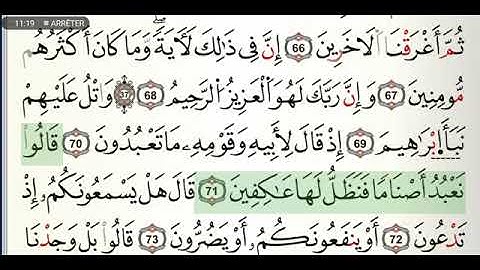 11:19 ■ ARRÊTER
ثُمَّ أَغْرَقْنَا اَلَاخَرِينَ 66 إِنَّ فِي ذَٰلِكَ لَأَيَةً وَمَا كَانَ أَكْثَرُهُم
مُّومِنِينَ 67 وَإِنَّ رَبَّكَ لَهُوَ اَلْعَزِيزُ اُلرَّحِيمُ 68 37 وَاتْلُ عَلَيْهِمْ
نَبَأَ إِبْرَاهِيمَ 69 إِذْ قَالَ لِأَبِيهِ وَقَوْمِهِۦ مَا تَعْبُدُونَ 70 قَالُوا
نَعْبُدُ أَصْنَامًا فَنَظَلُّ لَهَا عَٰكِفِينَ 71 قَالَ هَلْ يَسْمَعُونَكُمُۥ إِذ
تَدْعُونَ 72 أَوْ يَنفَعُونَكُمُۥ أَوْ يَضُرُّونَ 73 قَالُوا بَلْ وَجَدْنَا